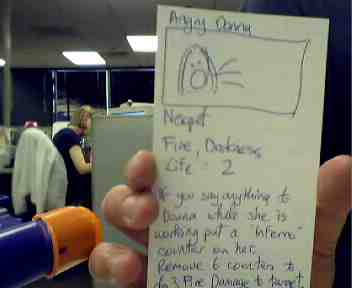 Angry Donna
Neopet
Fire, Darkness
Life: 2
If you say anything to
Donna while she is
working put a "inferno"
counter on her.
Remove 6 counters to
do 3 Fire Damage to target